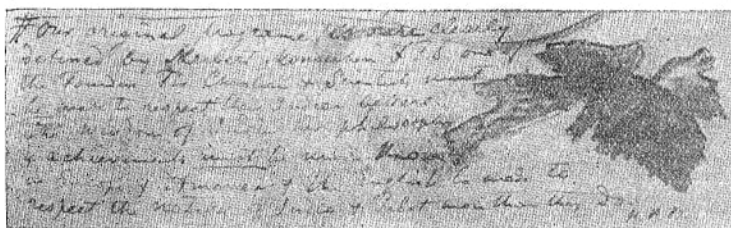 Our original programme is here clearly
defined by Herbert Monachesi F.T.S. one of
the Founders The Christian & Scientist must
be made to respect their Indian betters.
The Wisdom of India her philosophy
& achievements must be made known
in Europe & America & the English be made to
respect the natives of India & Tibet more than they do.
H.P.B.